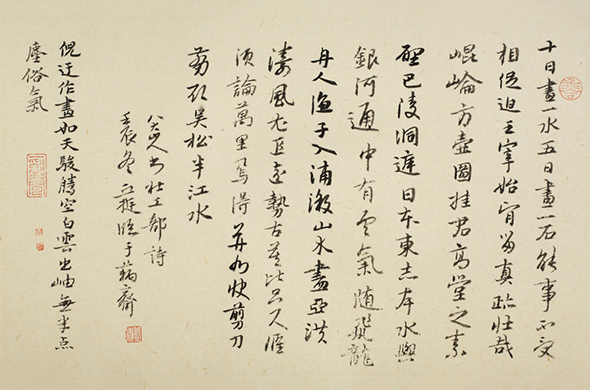 十日畫一水五日畫一石能事不受
相促迫王宰始肯留真跡壯哉
崐崘方壺圖挂君高堂之素
壁巴陵洞庭日本東赤岸水與
銀河通中有雲氣随飛龍
舟人漁子入浦漵山木盡亞洪
濤風尤工遠勢古莫比只尺應
須論萬里焉得并州快剪刀
剪取吳松半江水
八大山人書杜工部詩
壬辰冬臨于藕齋
倪迂作畫如天駿騰空白雲出岫無半点
塵俗氣